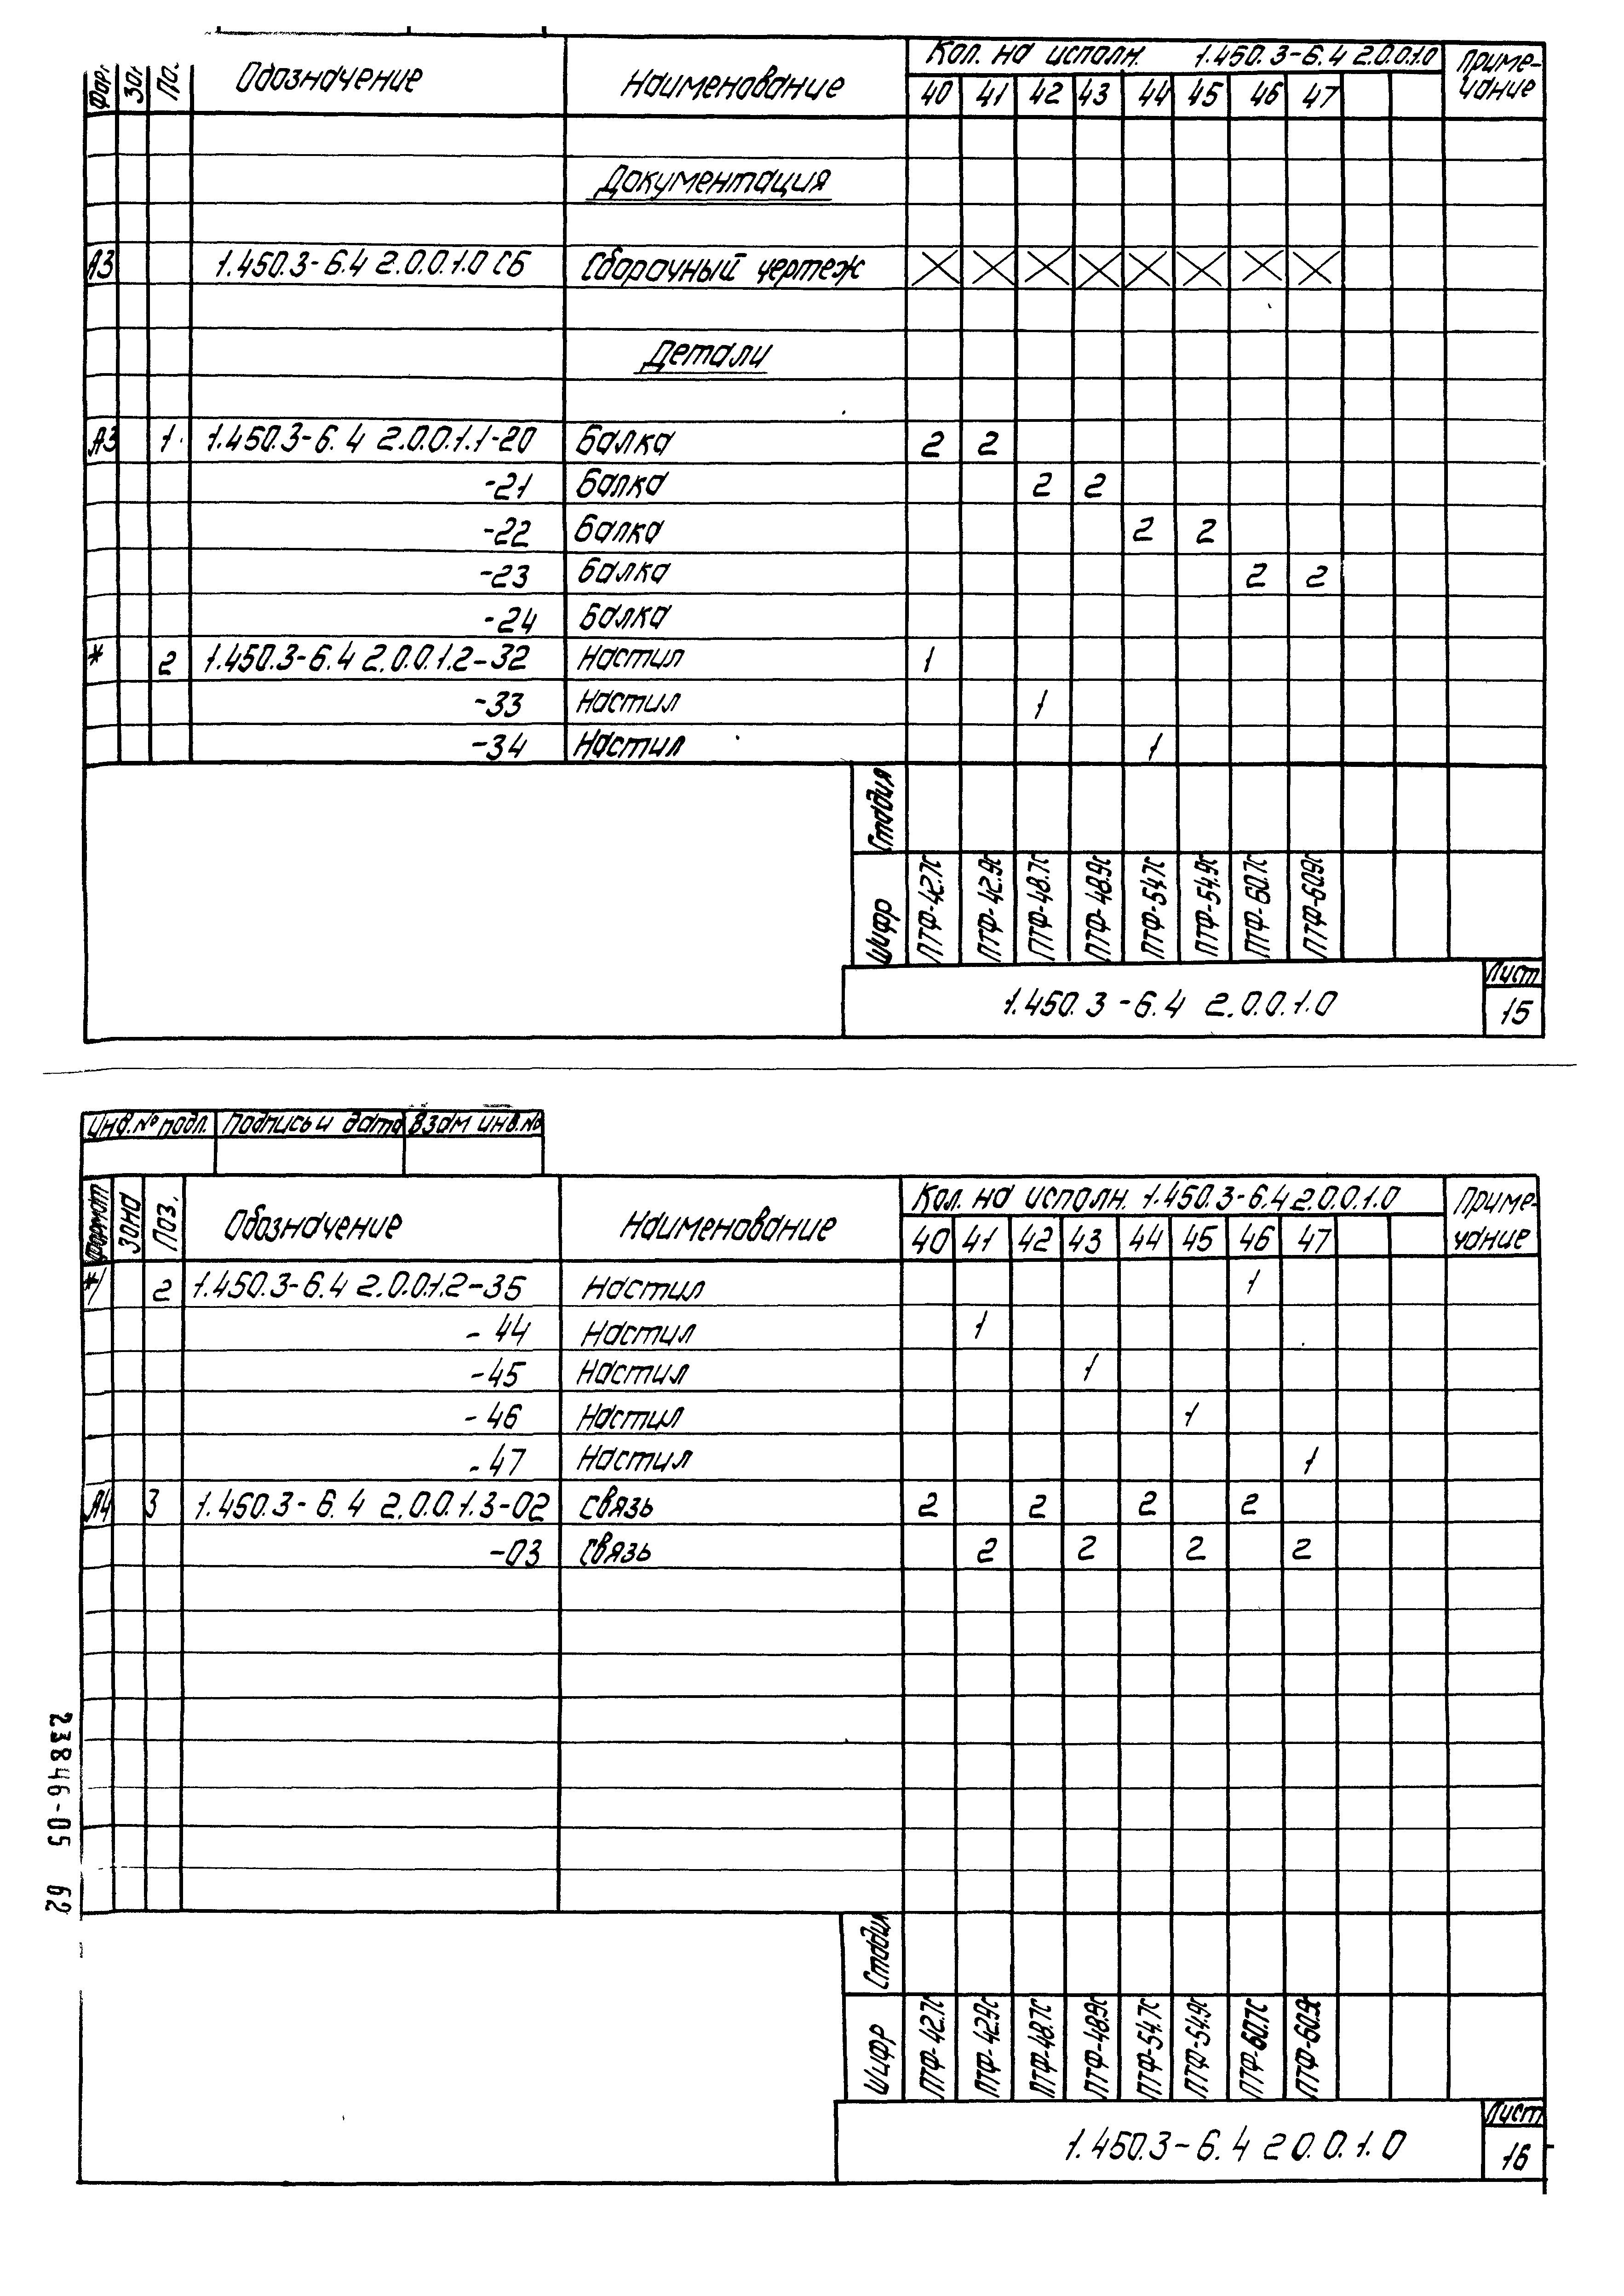 Обозначение Наименование Кол. на исполн. 1.450.3-6.4 2.0.0.1.0 Приме-
40 41 42 43 44 45 46 47 чание
Документация
А3 1.450.3-6.4 2.0.0.1.0 СБ Сборочный чертеж
Детали
А3 1 1.450.3-6.4 2.0.0.1.1-20 Балка 2 2
-21 Балка 2 2
-22 Балка 2 2
-23 Балка 2 2
-24 Балка
* 2 1.450.3-6.4 2.0.0.1.2-32 Настил 1
-33 Настил 1
-34 Настил 1
Стадия
Шифр ПТФ-42.7С ПТФ-42.9С ПТФ-48.7С ПТФ-48.9С ПТФ-54.7С ПТФ-54.9С ПТФ-60.7С ПТФ-60.9С
1.450.3-6.4 2.0.0.1.0 Лист
15
Инв.№ подл. Подпись и дата Взам инв.№
Формат Зона Поз. Обозначение Наименование Кол. на исполн. 1.450.3-6.4 2.0.0.1.0 Приме-
40 41 42 43 44 45 46 47 чание
*/ 2 1.450.3-6.4 2.0.0.1.2-35 Настил 1
-44 Настил 1
-45 Настил 1
-46 Настил 1
-47 Настил 1
А4 3 1.450.3-6.4 2.0.0.1.3-02 Связь 2 2 2 2
-03 Связь 2 2 2 2
Стадия
Шифр ПТФ-42.7С ПТФ-42.9С ПТФ-48.7С ПТФ-48.9С ПТФ-54.7С ПТФ-54.9С ПТФ-60.7С ПТФ-60.9С
1.450.3-6.4 2 0.0.1.0 Лист
16
23846-05 62